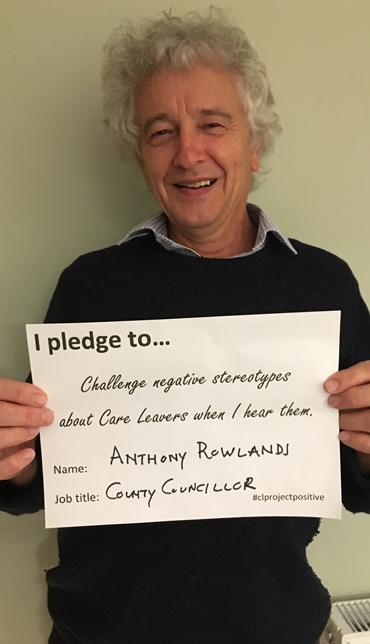 I pledge to...
Challenge negative stereotypes
about Care Leavers when I hear them.
Name: ANTHONY ROWLANDS
Job title: COUNTY COUNCILLOR #clprojectpositive